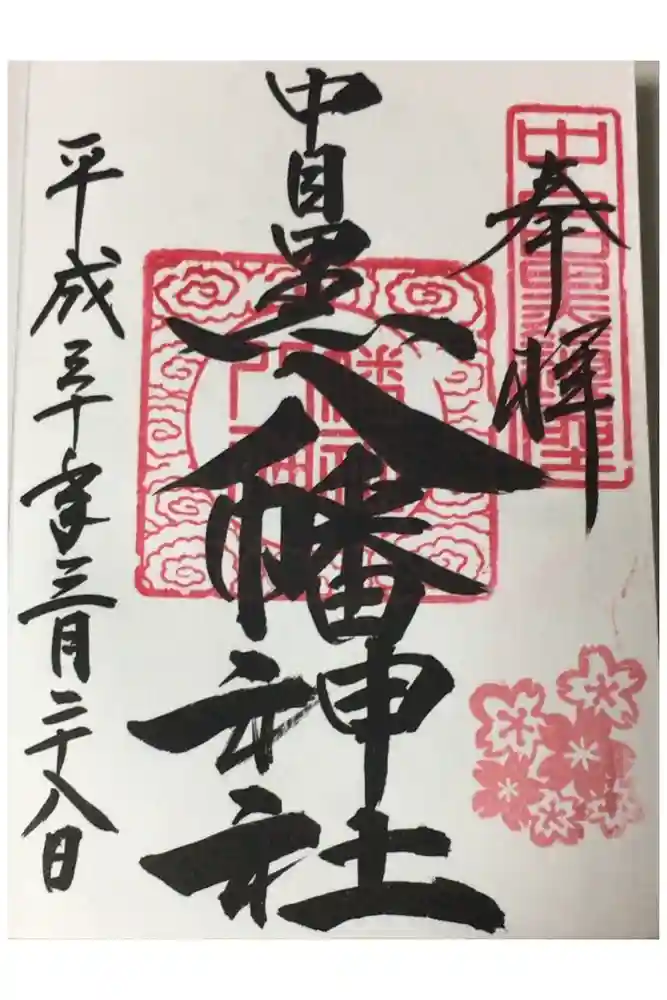 奉拝
中目黒八幡神社
平成三十年三月二十八日